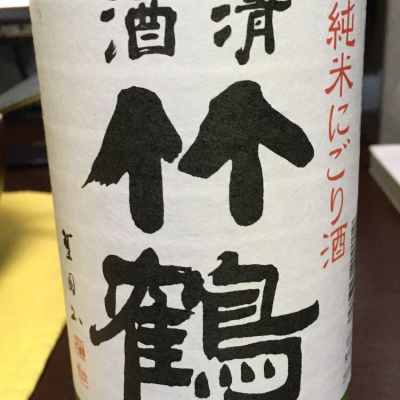 純米にごり酒
清酒
竹鶴